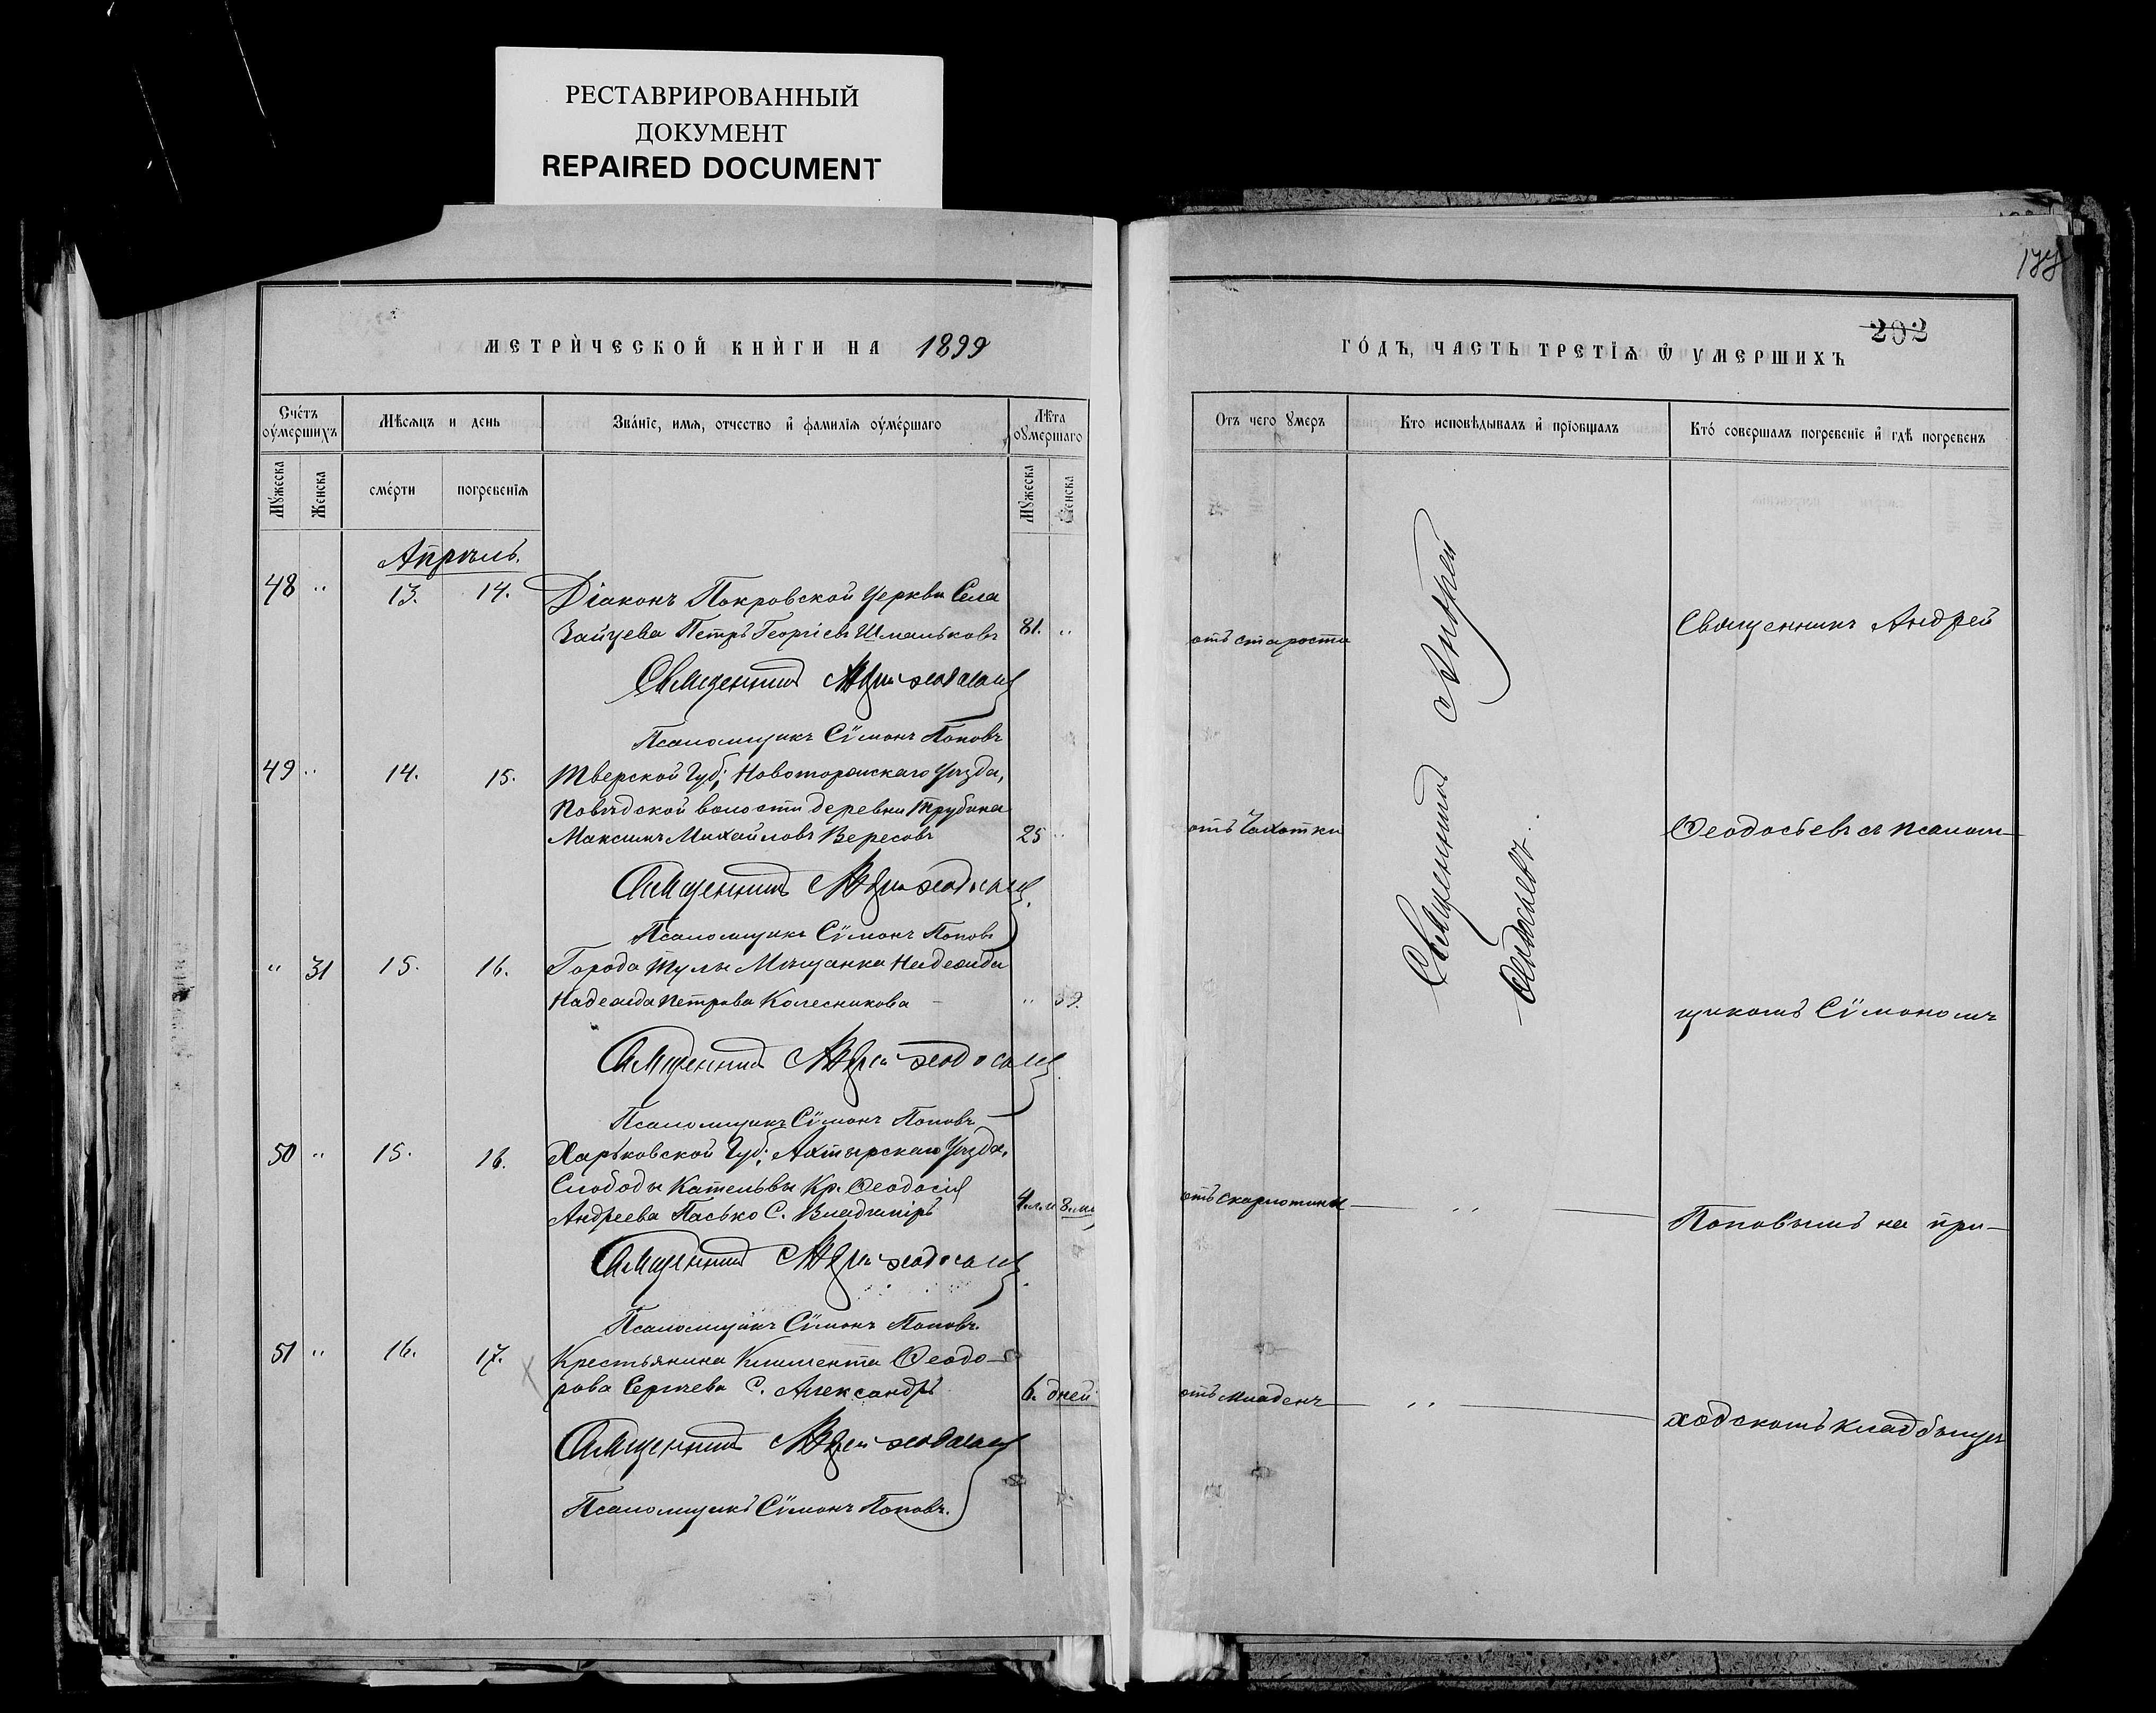 РЕСТАВРИРОВАННЫЙ
ДОКУМЕНТ
REPAIRED DOCUMENT
МЕТРИЧЕСКОЙ КНИГИ НА 1899
Счетъ оумершихъ
Мѣсяцъ и день
Званіе, имя, отчество и фамилія оумершаго
Лѣта оумершаго
Мужеска
Женска
смерти
погребенія
Мужеска
Женска
Апрѣль.
48 " 13. 14. Діаконъ Покровской Церкви Села
Зайцева Петръ Георгіевъ Шмальковъ 81. "
Священникъ Андрей Ѳеодосіевъ
Псаломщикъ Сѵмонъ Поповъ
49 " 14. 15. Тверской Губ; Новоторжскаго Уѣзда,
Повѣдской волости деревни Трубина
Максимъ Михайловъ Вересовъ 25 "
Священникъ Андрей Ѳеодосіевъ
Псаломщикъ Сѵмонъ Поповъ
" 31 15. 16. Города Тулы Мѣщанка Надежда
Надежда Петрова Колесникова " 39.
Священникъ Андрей Ѳеодосіевъ
Псаломщикъ Сѵмонъ Поповъ
50 " 15. 16. Харьковской Губ; Ахтырскаго Уѣзда,
Слободы Кательвы Кр. Ѳеодосія
Андреева Пасько С. Владиміръ
Священникъ Андрей Ѳеодосіевъ
Псаломщикъ Сѵмонъ Поповъ.
51 " 16. 17. Крестьянина Климента Ѳеодо-
рова Сергѣева С. Александръ 6. дней
Священникъ Андрей Ѳеодосіевъ
Псаломщикъ Сѵмонъ Поповъ.
202
ГОДЪ, ЧАСТЬ ТРЕТІЯ Ѿ УМЕРШИХЪ
Отъ чего умеръ
Кто исповѣдывалъ и пріобщалъ
Кто совершалъ погребеніе и гдѣ погребенъ
отъ старости
отъ Чахотки
отъ скарлотины
отъ младенч
Священникъ Андрей
Ѳеодосіевъ
Священникъ Андрей
Ѳеодосьевъ съ псалом-
щикомъ Сѵмономъ
Поповымъ на при-
ходскомъ кладбищѣ